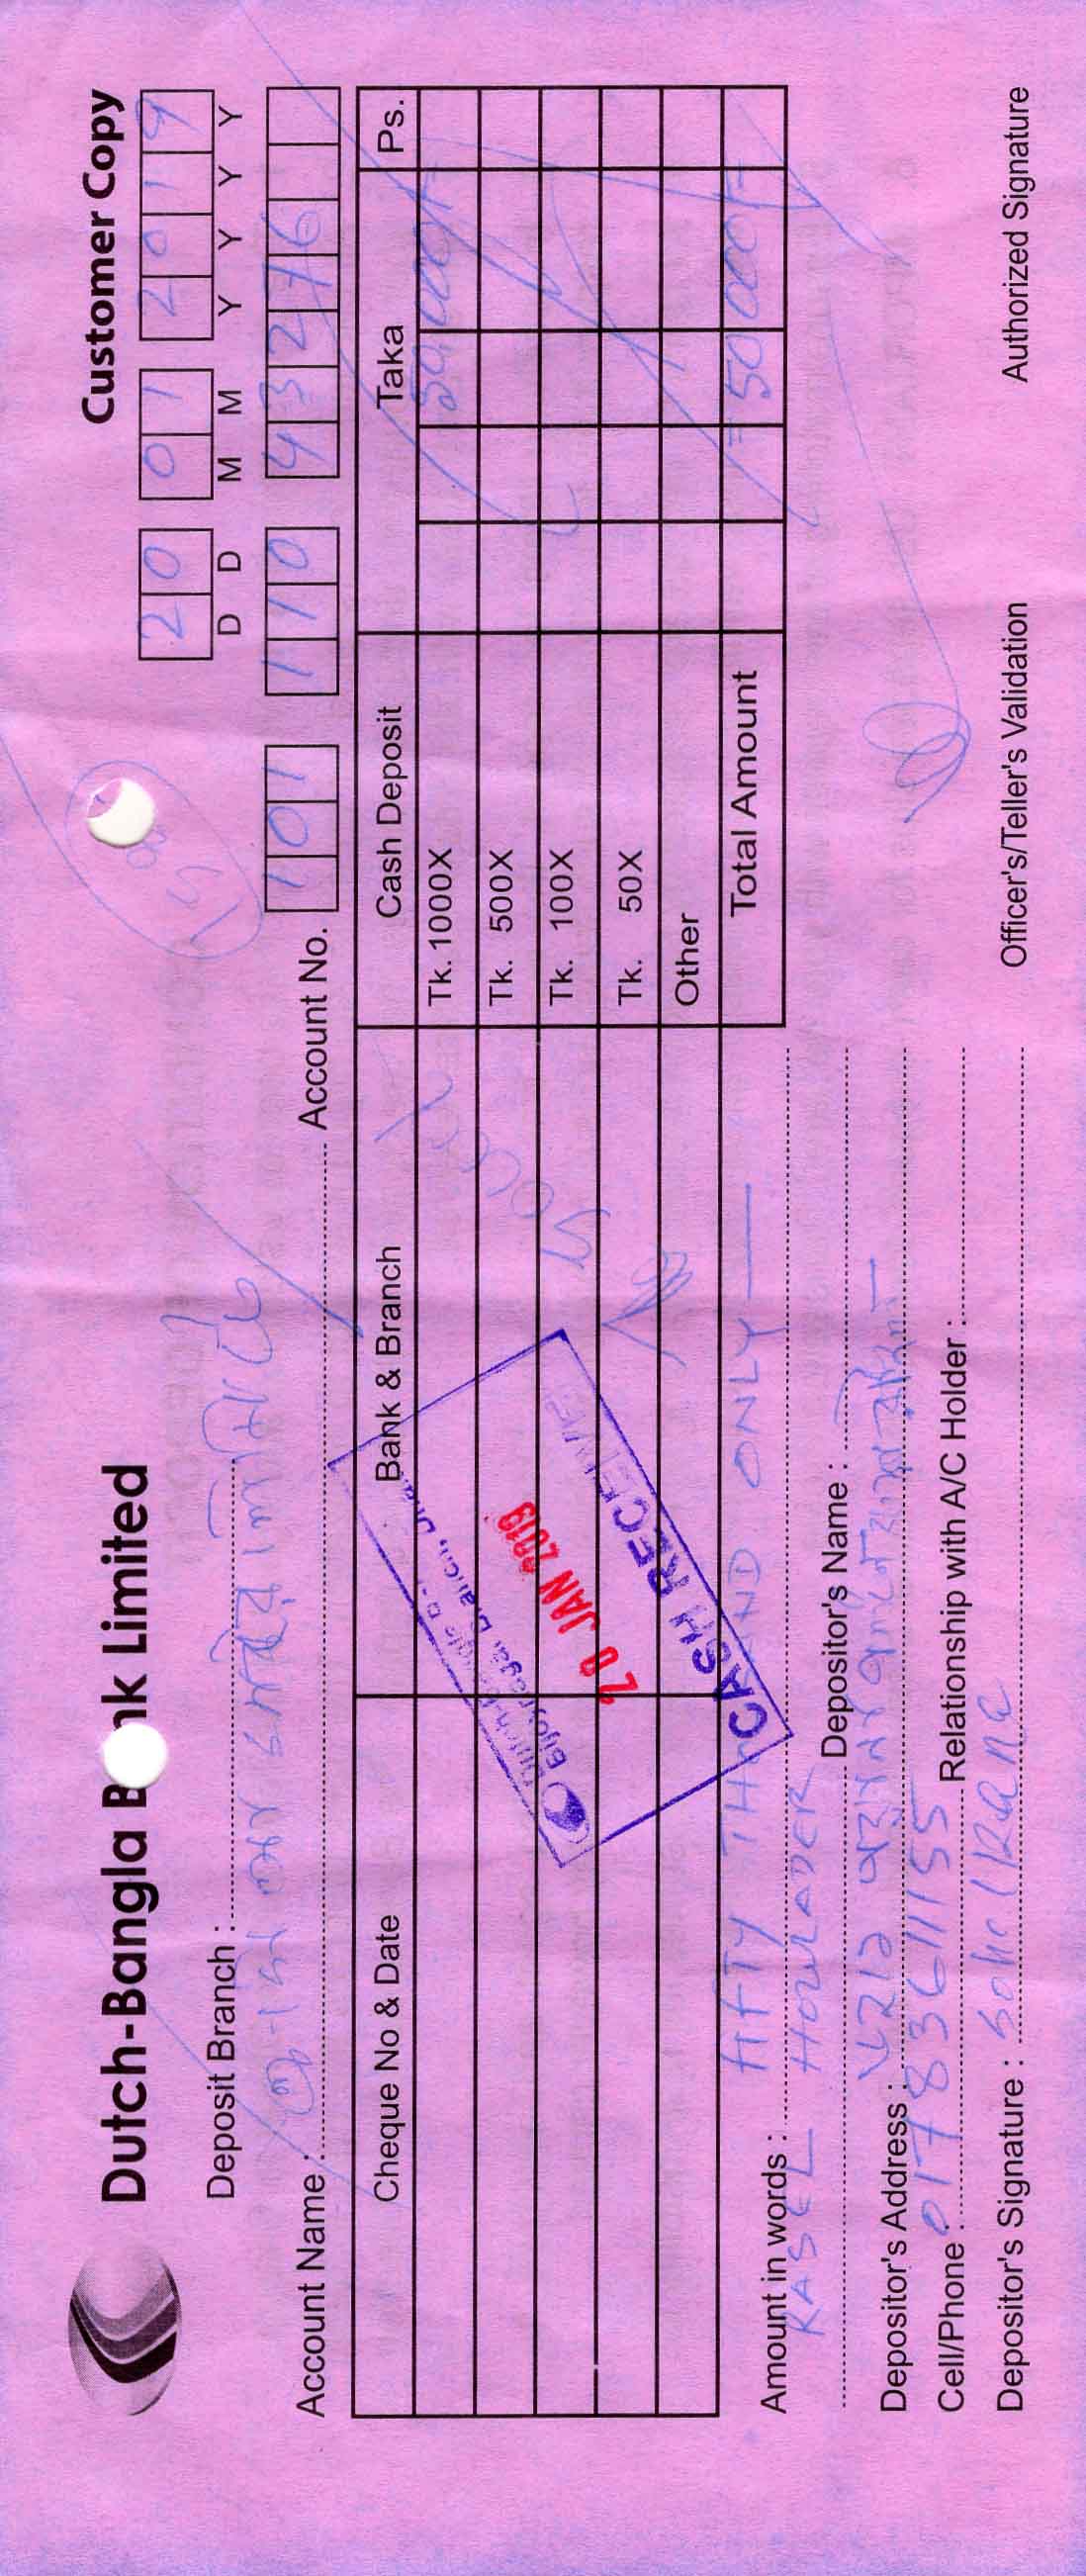 Dutch-Bangla Bank Limited
Customer Copy
20 01 2019
D D M M Y Y Y Y
Deposit Branch :
Account Name :
Account No. 101 110 43276
Cheque No & Date Bank & Branch Cash Deposit Taka Ps.
Tk. 1000X 50,000/-
Tk. 500X
Tk. 100X
Tk. 50X
Other
Total Amount = 50000/-
20 JAN 2019
CASH RECEIVED
Amount in words : FIFTY THOUSAND ONLY
RASEL HOWLADER Depositor's Name :
Depositor's Address :
Cell/Phone : 01778361155 Relationship with A/C Holder :
Depositor's Signature : Officer's/Teller's Validation Authorized Signature